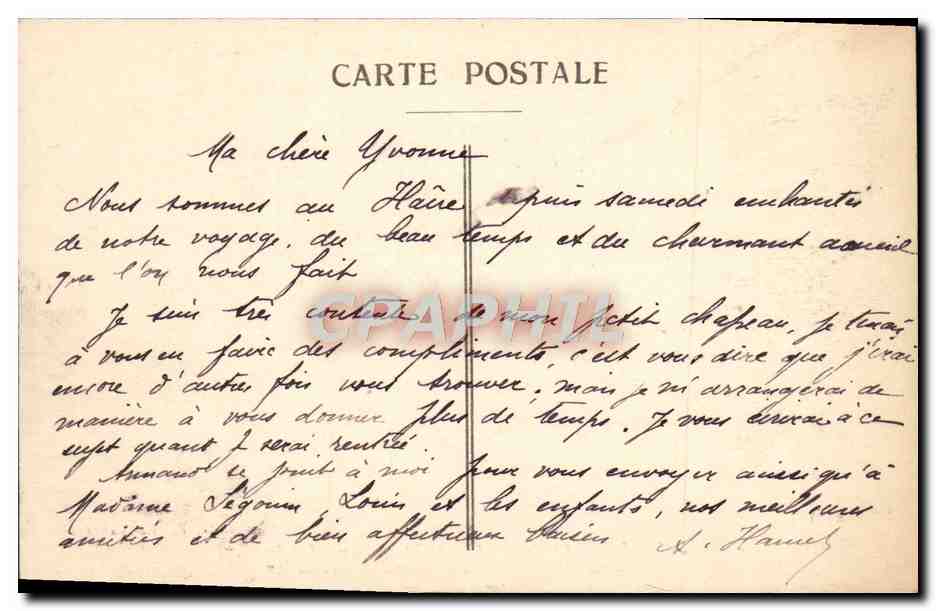 CARTE POSTALE
Ma chère Yvonne
Nous sommes au Hâvre depuis samedi enchantés
de notre voyage. du beau temps et du charmant accueil
que l'on nous fait
Je suis très contente de mon petit chapeau, je tenais
à vous en faire des compliments, c'est vous dire que j'irai
encore d'autres fois vous trouver, mais je m'arrangerai de
manière à vous donner plus de temps. Je vous écrirai à ce
sujet quant je serai rentrée.
Armand se joint à moi pour vous envoyer ainsi qu'à
Madame Ségouin Louis et les enfants, nos meilleures
amitiés et de bien affectueux baisers A. Hamel
CPAPHIL